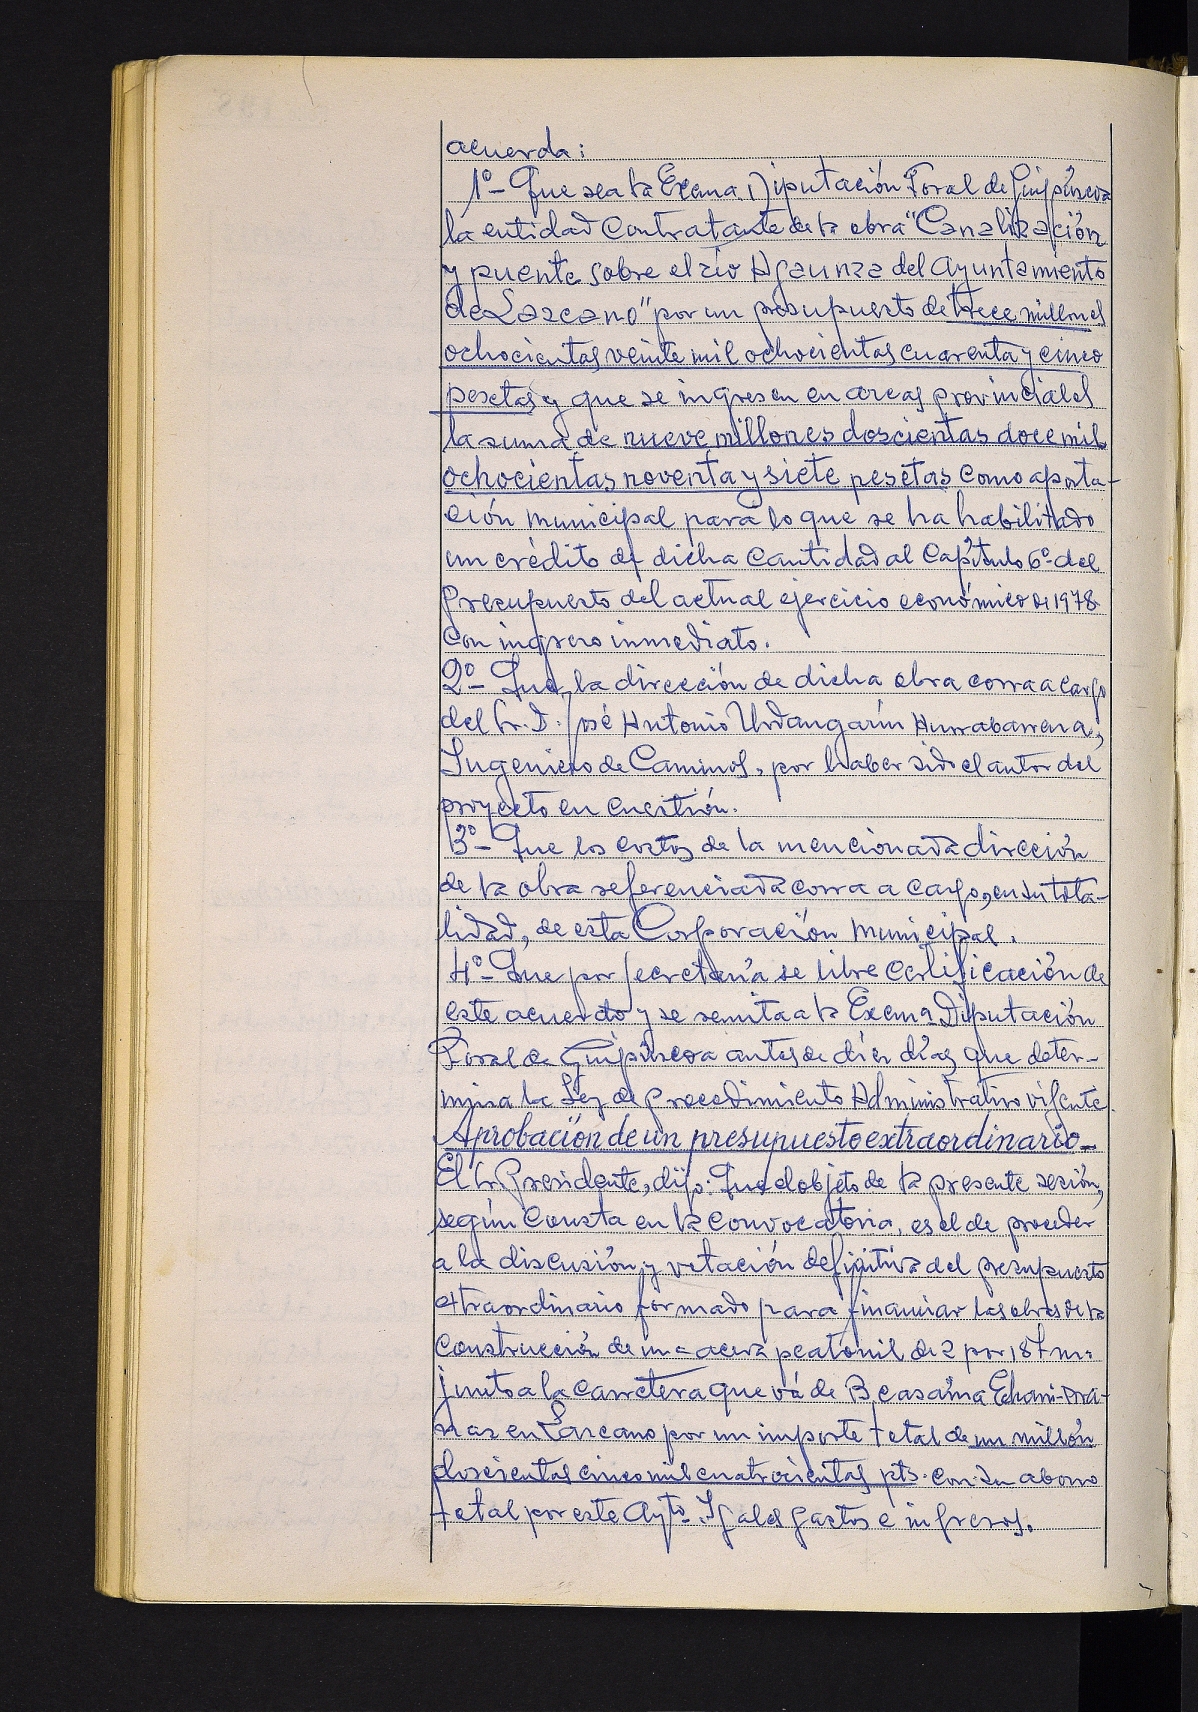 acuerda:
1º- Que sea la Excma. Diputación Foral de Guipúzcoa
la entidad Contratante de la obra "Canalización
y puente sobre el río Agaunza del Ayuntamiento
de Lazcano" por un presupuesto de trece millones
ochocientas veinte mil ochocientas cuarenta y cinco
pesetas y que se ingresen en arcas provinciales
la suma de nueve millones doscientas doce mil
ochocientas noventa y siete pesetas como aporta-
ción municipal para lo que se ha habilitado
un crédito de dicha Cantidad al Capítulo 6º del
Presupuesto del actual ejercicio económico de 1978
con ingreso inmediato.
2º- Que, la dirección de dicha obra corra a cargo
del Sr. D. José Antonio Urdangarín Aurrabarrena,
Ingeniero de Caminos, por haber sido el autor del
proyecto en cuestión.
3º- Que los costos de la mencionada dirección
de la obra referenciada corra a cargo, en su tota-
lidad, de esta Corporación municipal.
4º- Que por Secretaría se libre Certificación de
este acuerdo y se remita a la Excma Diputación
Foral de Guipúzcoa antes de diez días que deter-
mina la Ley de Procedimiento Administrativo vigente.
Aprobación de un presupuesto extraordinario-
El Sr. Presidente, dijo: Que el objeto de la presente sesión,
según Consta en la convocatoria, es el de proceder
a la discusión y votación definitiva del presupuesto
extraordinario formado para financiar las obras de la
Construcción de una acera peatonil de 2 por 187 m.
junto a la Carretera que vá de Beasaina Echarri-Ara-
naz en Lazcano por un importe total de un millón
doscientas cinco mil cuatrocientas pts. con su abono
total por este Ayto. Iguales gastos e ingresos.